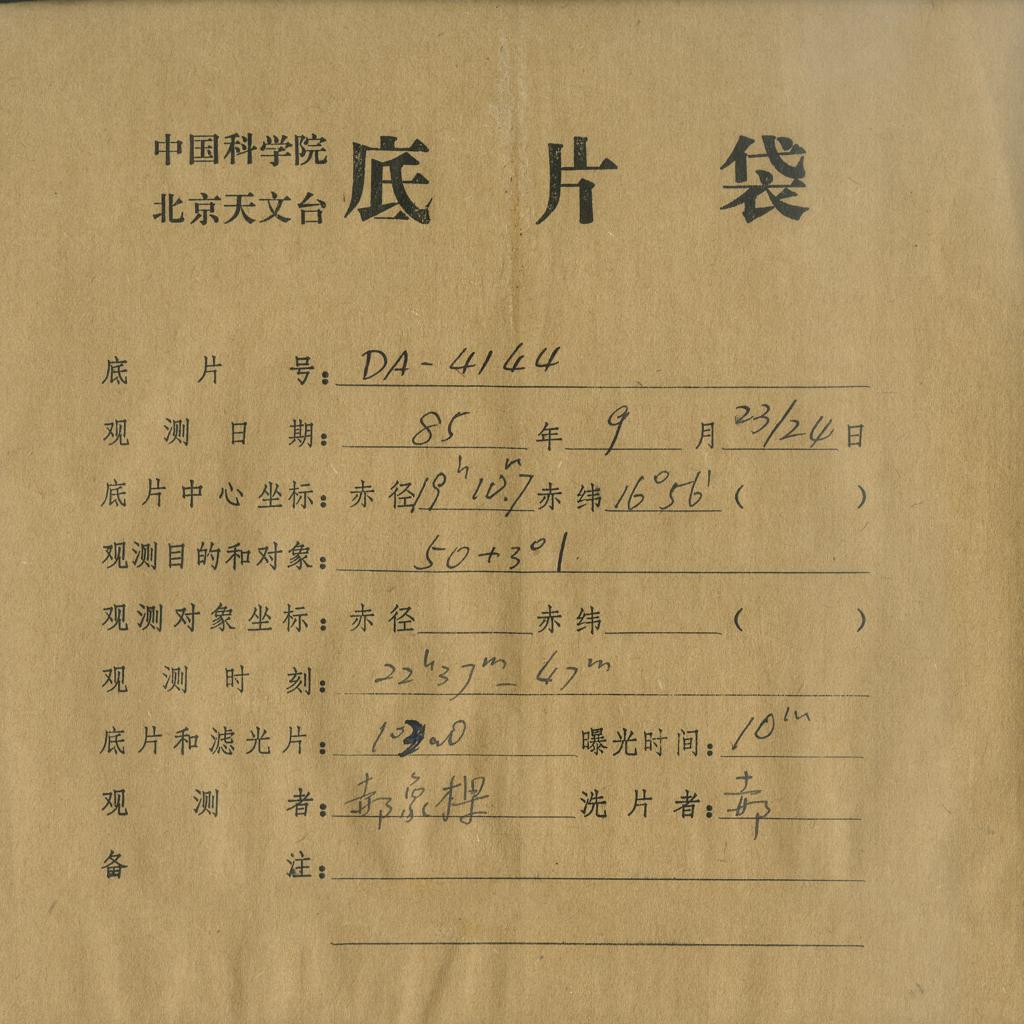 中国科学院
北京天文台 底片袋
底片号：DA-4144
观测日期：85年9月23/24日
底片中心坐标：赤径19ʰ10ᵐ.7赤纬16°56′（ ）
观测目的和对象：50+3°1
观测对象坐标：赤径 赤纬 （ ）
观测时刻：22ʰ37ᵐ-47ᵐ
底片和滤光片：103a0 曝光时间：10ᵐ
观测者：郝象樑 洗片者：郝
备注：